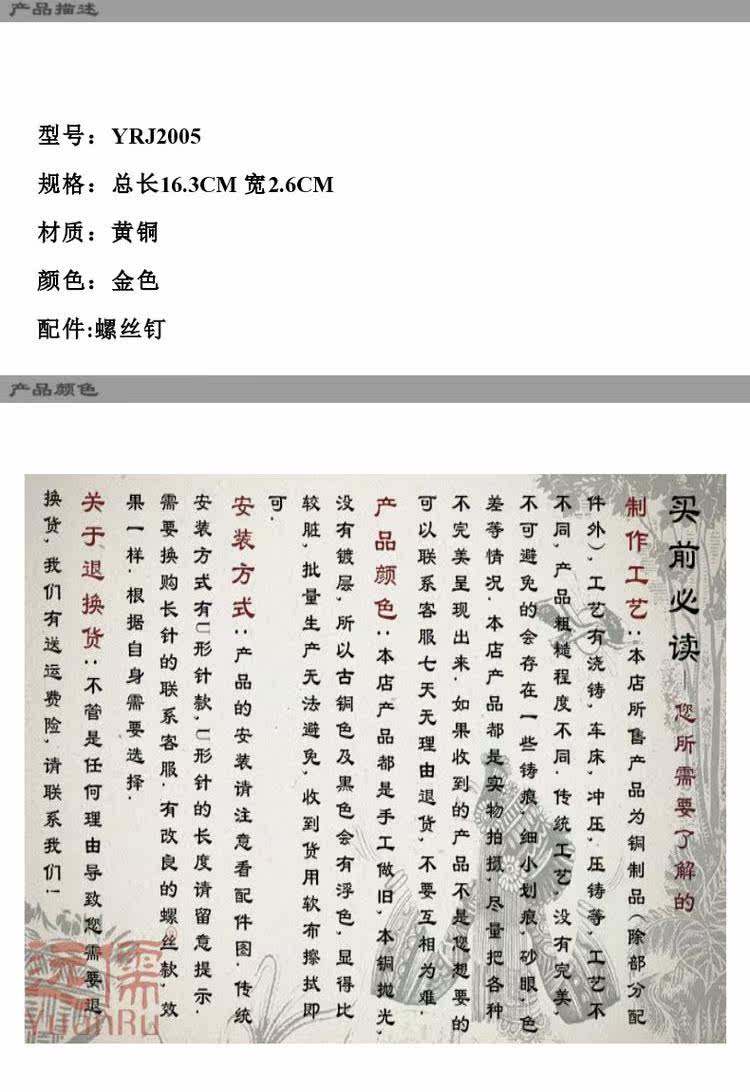 产品描述
型号：YRJ2005
规格：总长16.3CM 宽2.6CM
材质：黄铜
颜色：金色
配件:螺丝钉
产品颜色
买前必读—您所需要了解的
制作工艺：本店所售产品为铜制品（除部分配
件外），工艺有浇铸，车床，冲压，压铸等，工艺不
不同，产品粗糙程度不同．传统工艺，没有完美，
不可避免的会存在一些铸痕，细小划痕，砂眼，色
差等情况．本店产品都是实物拍摄，尽量把各种
不完美呈现出来．如果收到的产品不是您想要的
可以联系客服七天无理由退货，不要互相为难．
产品颜色：本店产品都是手工做旧，本铜抛光，
没有镀层，所以古铜色及黑色会有浮色，显得比
较脏，批量生产无法避免，收到货用软布擦拭即
可．
安装方式：产品的安装请注意看配件图．传统
安装方式有匚形针款，匚形针的长度请留意提示．
需要换购长针的联系客服．有改良的螺丝款，效
果一样．根据自身需要选择．
关于退换货：不管是任何理由导致您需要退
换货，我们有送运费险，请联系我们！
YuanRu